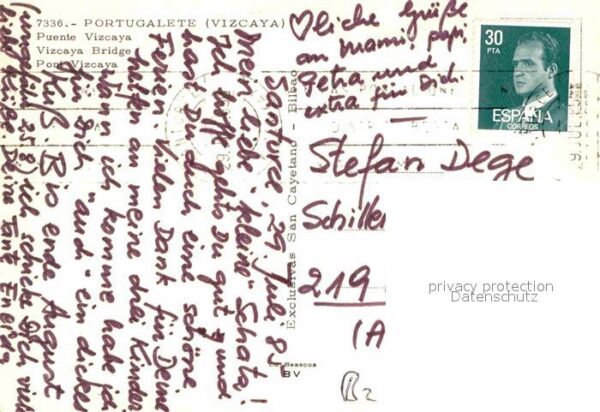 7336.- PORTUGALETE (VIZCAYA)
Puente Vizcaya
Vizcaya Bridge
Pont Vizcaya
♡liche Grüße
an mami, papi,
Petra und
extra für Dich.
30
PTA
ESPAÑA
CORREOS
Santurce, 29. Juli 83
Mein liebe "kleine" Schatz!
Ich hoffe gehts Du gut und
hast Du auch eine schöne
Ferien. Vielen Dank für Deine
helfen an meine drei Kinder
Wenn ich komme hab ja
für Dich "auch" ein dickes
Kuß. Bis ende August
ich schick Dich viele
liebe Deine Tante
Exclusivas San Cayetano - Bilbao
Stefan Dege
Schille
219
(A
privacy protection
Datenschutz
Ed. Beascoa
BV
B2